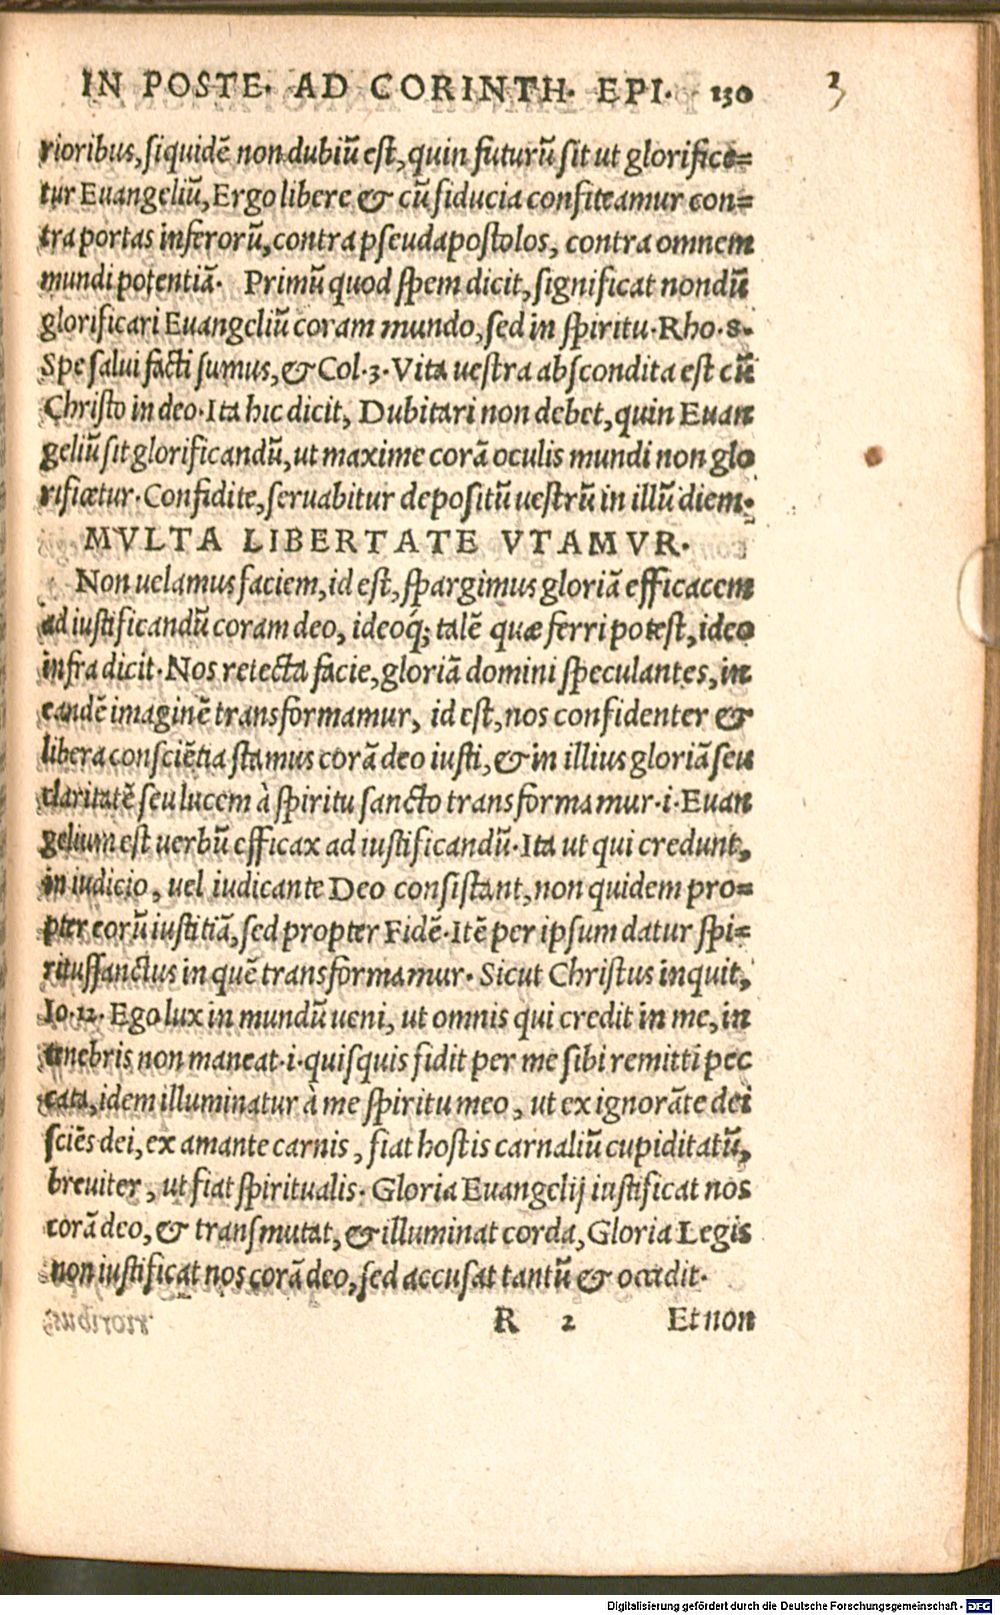 IN POSTE. AD CORINTH. EPI. 130
3
rioribus, siquidē non dubiū est, quin futurū sit ut glorifice=
tur Euangeliū, Ergo libere & cū fiducia confiteamur con=
tra portas inferorū, contra pseudapostolos, contra omnem
mundi potentiā. Primū quod spem dicit, significat nondū
glorificari Euangeliū coram mundo, sed in spiritu. Rho. 8.
Spe salui facti sumus, & Col. 3. Vita uestra abscondita est cū
Christo in deo. Ita hic dicit, Dubitari non debet, quin Euan
geliū sit glorificandū, ut maxime corā oculis mundi non glo
rificetur. Confidite, seruabitur depositū uestrū in illū diem.
MVLTA LIBERTATE VTAMVR.
Non uelamus faciem, id est, spargimus gloriā efficacem
ad iustificandū coram deo, ideoq́; talē quæ ferri potest, ideo
infra dicit. Nos retecta facie, gloriā domini speculantes, in
eandē imaginē transformamur, id est, nos confidenter &
libera consciētia stamus corā deo iusti, & in illius gloriā seu
claritatē seu lucem à spiritu sancto transformamur. i. Euan
gelium est uerbū efficax ad iustificandū. Ita ut qui credunt,
in iudicio, uel iudicante Deo consistant, non quidem pro=
pter eorū iustitiā, sed propter Fidē. Itē per ipsum datur spi=
ritussanctus in quē transformamur. Sicut Christus inquit,
Io. 12. Ego lux in mundū ueni, ut omnis qui credit in me, in
tenebris non maneat. i. quisquis fidit per me sibi remitti pec
cata, idem illuminatur à me spiritu meo, ut ex ignorāte dei
sciēs dei, ex amante carnis, fiat hostis carnaliū cupiditatū,
breuiter, ut fiat spiritualis. Gloria Euangelij iustificat nos
corā deo, & transmutat, & illuminat corda, Gloria Legis
non iustificat nos corā deo, sed accusat tantū & occidit.
R 2 Et non
Digitalisierung gefördert durch die Deutsche Forschungsgemeinschaft - DFG